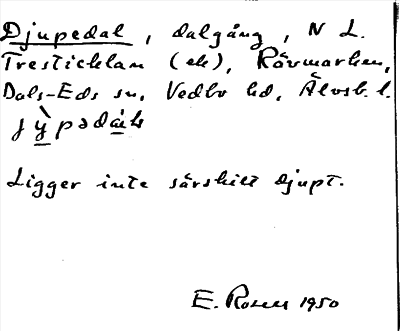 Djupedal, dalgång, N L.
Tresticklan (ek), Rävmarken,
Dals-Eds sn, Vedbo hd, Älvsb. l.
Ligger inte särskilt djupt.
E. Rosell 1950